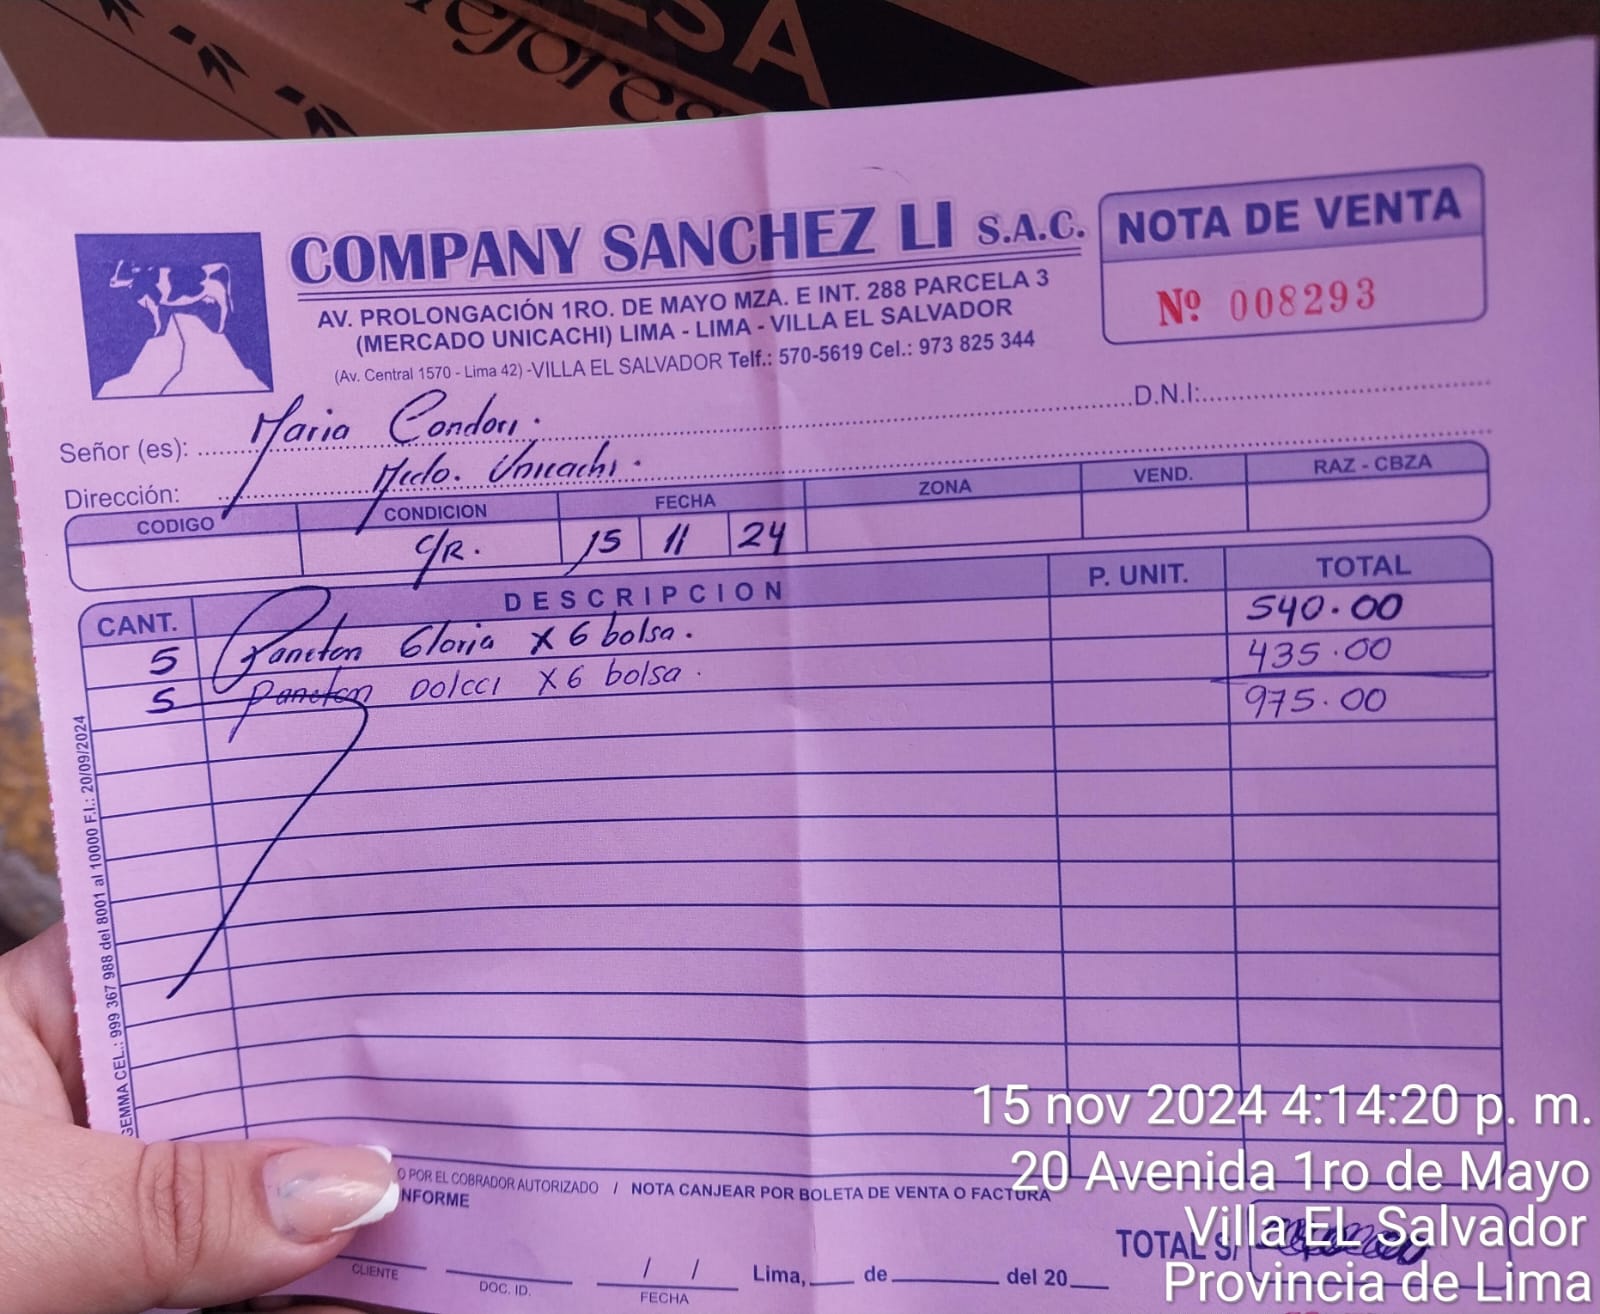 SA
ejores
COMPANY SANCHEZ LI S.A.C.
AV. PROLONGACIÓN 1RO. DE MAYO MZA. E INT. 288 PARCELA 3
(MERCADO UNICACHI) LIMA - LIMA - VILLA EL SALVADOR
(Av. Central 1570 - Lima 42) -VILLA EL SALVADOR Telf.: 570-5619 Cel.: 973 825 344
NOTA DE VENTA
Nº 008293
Señor (es): Maria Condori. D.N.I:
Dirección: Mcdo. Unicachi.
CODIGO CONDICION FECHA ZONA VEND. RAZ - CBZA
C/R. 15 11 24
CANT. DESCRIPCION P. UNIT. TOTAL
5 Paneton Gloria x 6 bolsa. 540.00
5 paneton DOLCCI x6 bolsa. 435.00
975.00
GEMMA CEL.: 999 367 988 del 8001 al 10000 F.I.: 20/09/2024
O POR EL COBRADOR AUTORIZADO / NOTA CANJEAR POR BOLETA DE VENTA O FACTURA
NFORME
TOTAL S/
CLIENTE DOC. ID. / / FECHA Lima, ___ de ___ del 20__
15 nov 2024 4:14:20 p. m.
20 Avenida 1ro de Mayo
Villa EL Salvador
Provincia de Lima